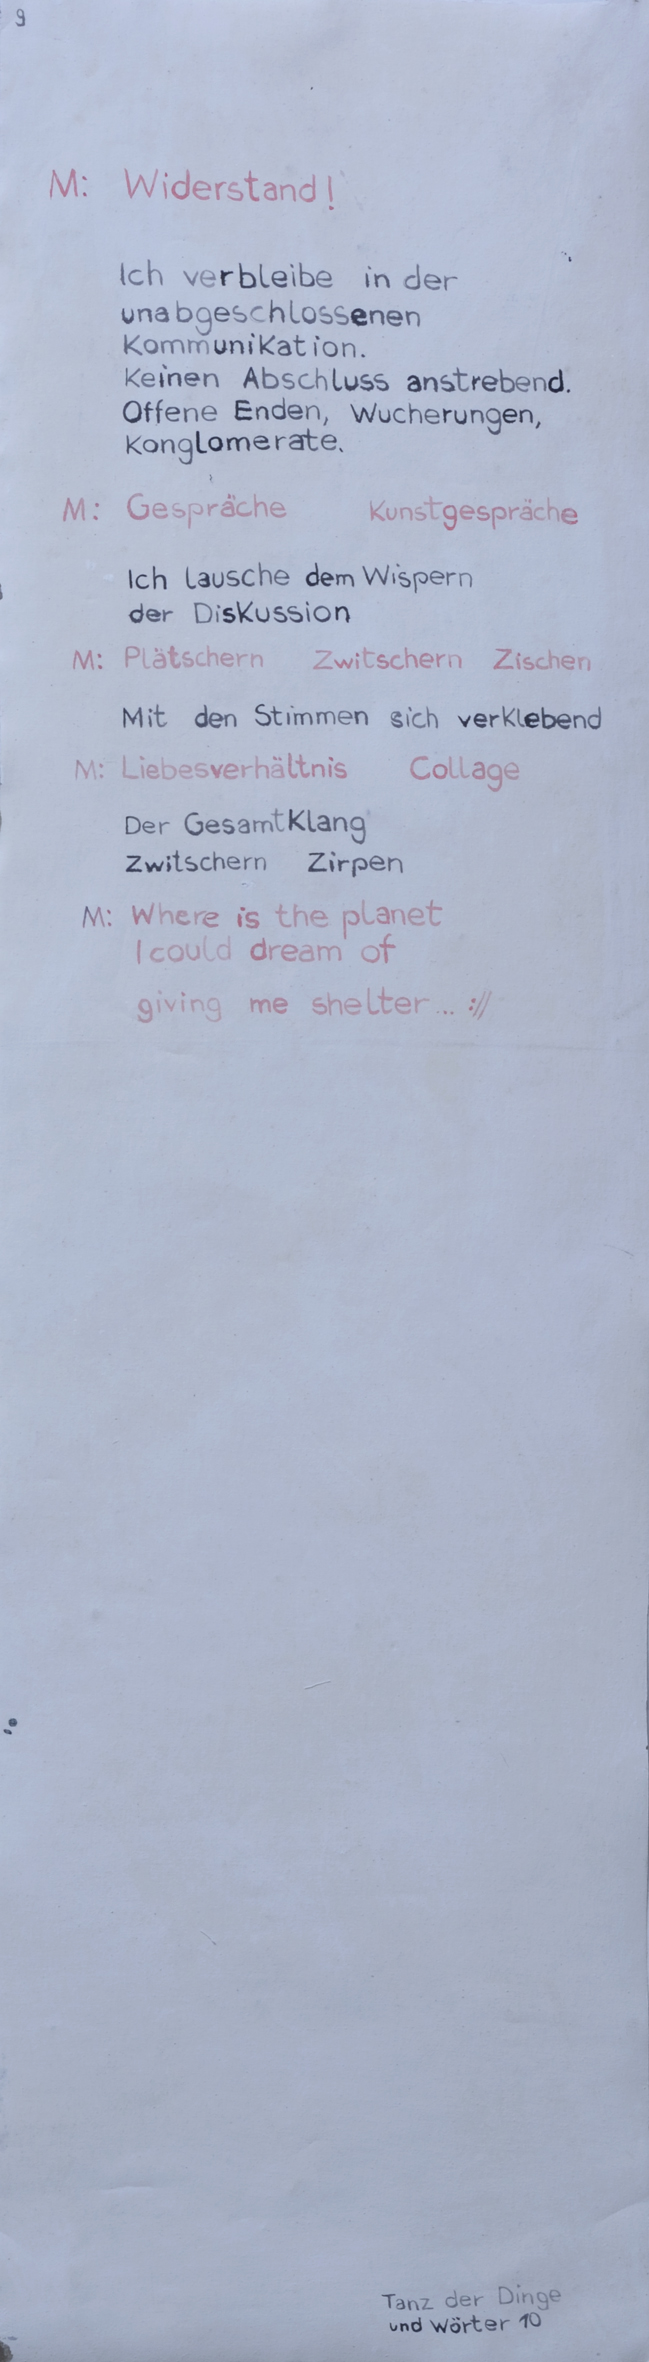 9
M: Widerstand!
Ich verbleibe in der
unabgeschlossenen
Kommunikation.
Keinen Abschluss anstrebend.
Offene Enden, Wucherungen,
Konglomerate.
M: Gespräche Kunstgespräche
Ich lausche dem Wispern
der Diskussion
M: Plätschern Zwitschern Zischen
Mit den Stimmen sich verklebend
M: Liebesverhältnis Collage
Der Gesamtklang
Zwitschern Zirpen
M: Where is the planet
I could dream of
giving me shelter... ://
Tanz der Dinge
und Wörter 10